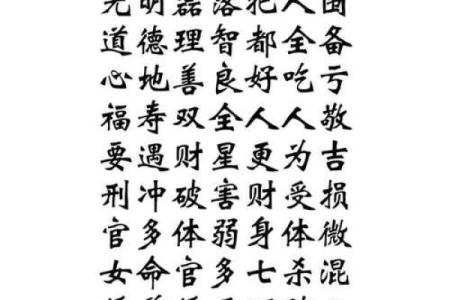 光明磊落犯人围
道德理智都全备
心地善良好吃亏
福寿双全人人敬
要遇财星更为吉
刑冲破害财受损
官多体弱身体微
女命官多七杀混